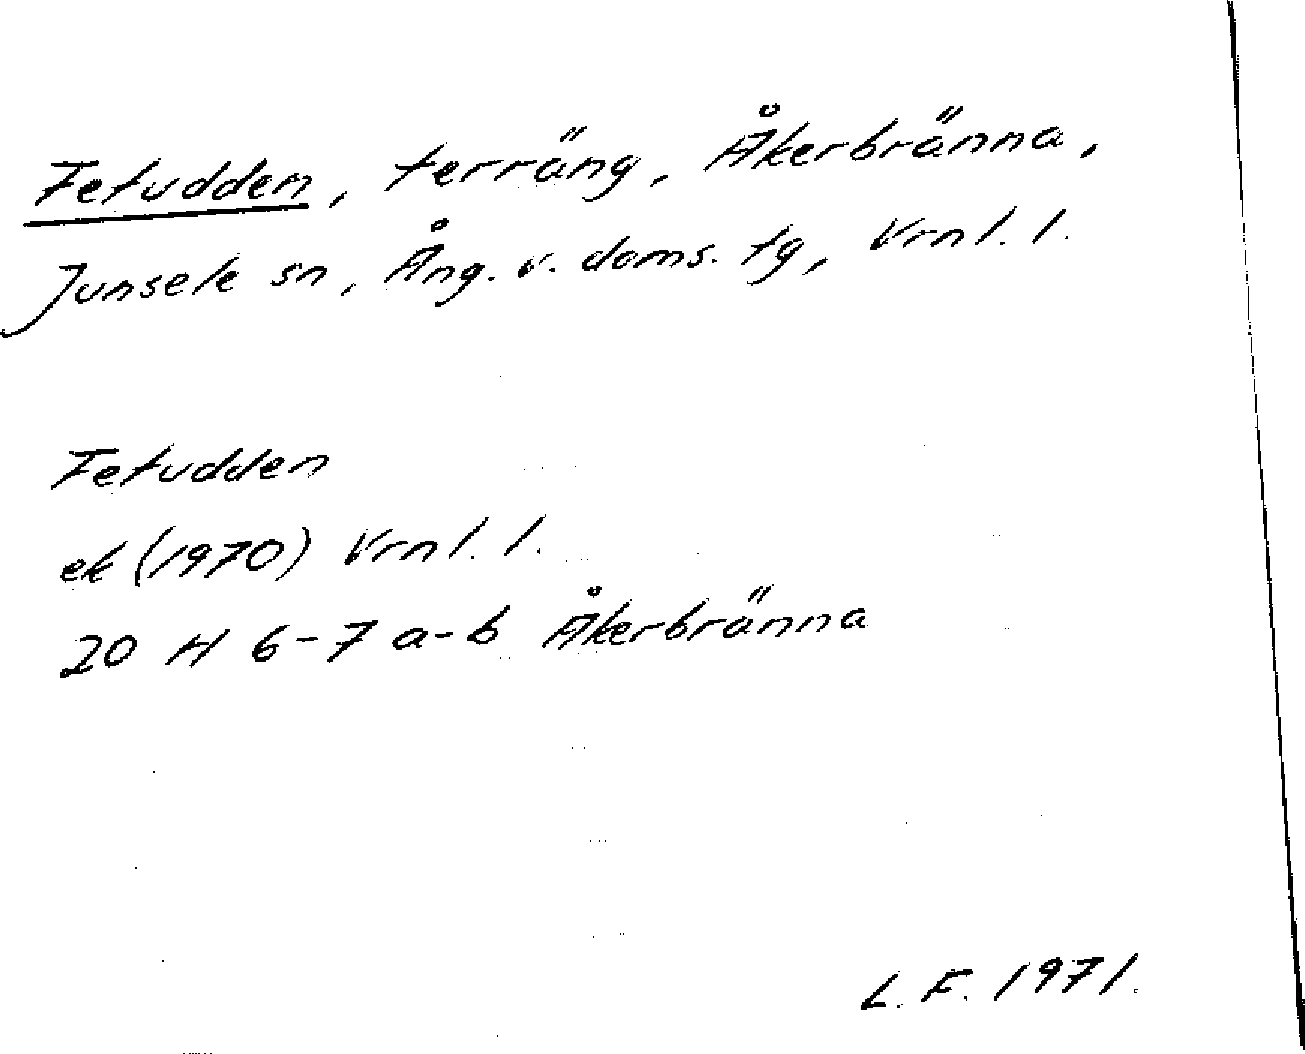 Fetudden, terräng, Åkerbränna,
Junsele sn, Ång. v. doms. tg, Vrnl. l.
Fetudden
ek (1970) Vrnl. l.
20 H 6-7 a-b Åkerbränna
L. F. 1971.